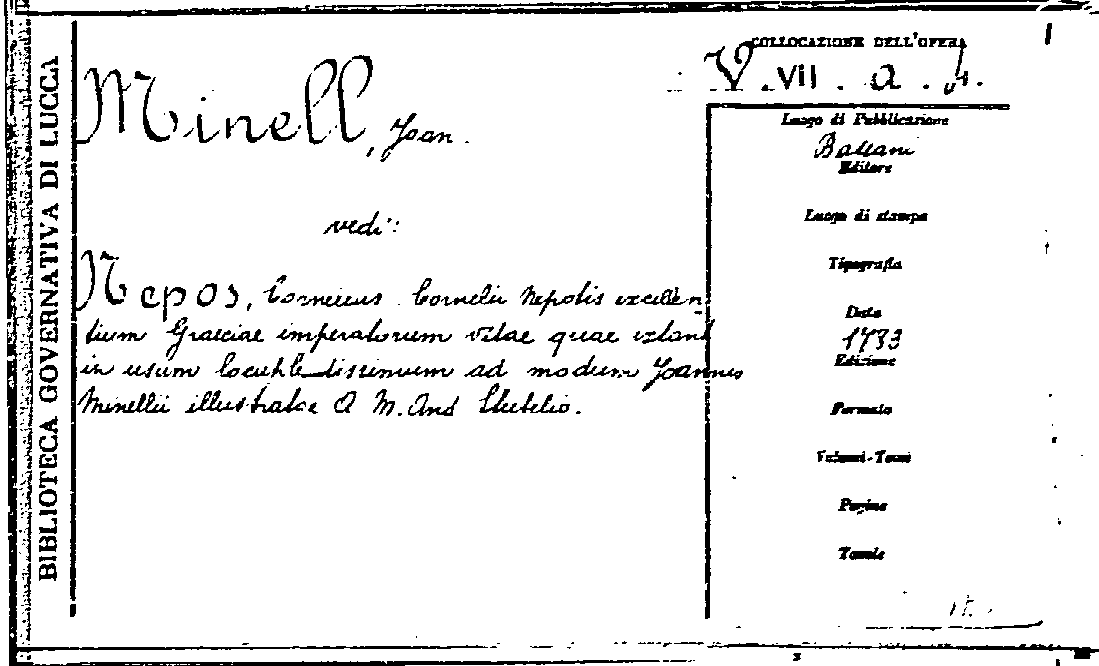 BIBLIOTECA GOVERNATIVA DI LUCCA
COLLOCAZIONE DELL'OPERA
V. VII. a. 4.
Minell, Joan.
vedi:
Nepos, Cornelius Cornelii Nepotis excellen
tium Graeciae imperatorum vitae quae extant
in usum ad modum Joannis
Minellii illustratae a M. And
Luogo di Pubblicazione
Bassani
Editore
Luogo di stampa
Tipografia
Data
1793
Edizione
Formato
Volumi-Tomi
Pagine
Tavole